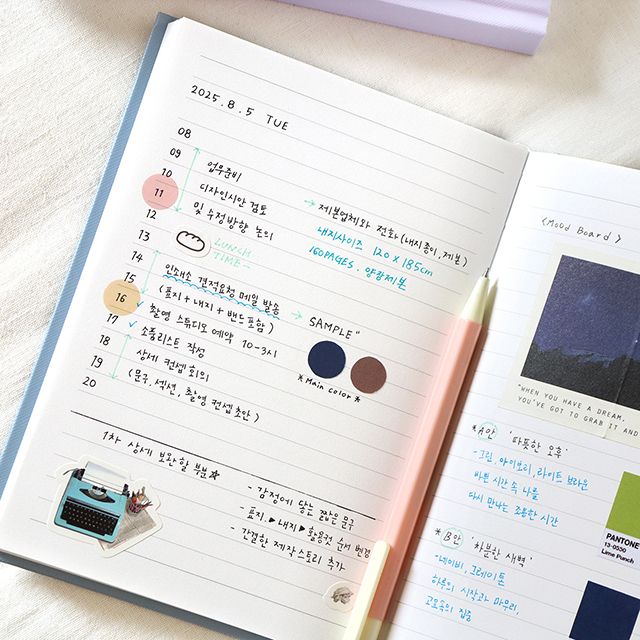 2025. 8. 5 TUE
08
09
10
11
12
13
14
15
16
17
18
19
20
업무준비
디자인시안 검토
및 수정방향 논의
→ 제본업체와 전화 (내지종이, 제본)
내지사이즈 120 x 185cm
160PAGES. 양장제본
LUNCH
TIME~
인쇄소 견적요청 메일 발송
(표지 + 내지 + 밴드포함)
→ SAMPLE"
✓ 촬영 스튜디오 예약 10-3시
✓ 소품리스트 작성
상세 컨셉 회의
(문구, 섹션, 촬영 컨셉초안)
* Main color *
1차 상세 보완할 부분☆
- 감정에 닿는 짧은 문구
- 표지 ▶ 내지 ▶ 활용컷 순서 변경
- 간결한 제작스토리 추가
<Mood Board>
"WHEN YOU HAVE A DREAM,
YOU'VE GOT TO GRAB IT AND
* A안 '따뜻한 오후'
- 크림, 아이보리, 라이트 브라운
바쁜 시간 속 나를
다시 만나는 조용한 시간
PANTONE
13-0550
Lime Punch
* B안 '차분한 새벽'
- 네이비, 그레이톤
하루의 시작과 마무리,
고요속의 집중